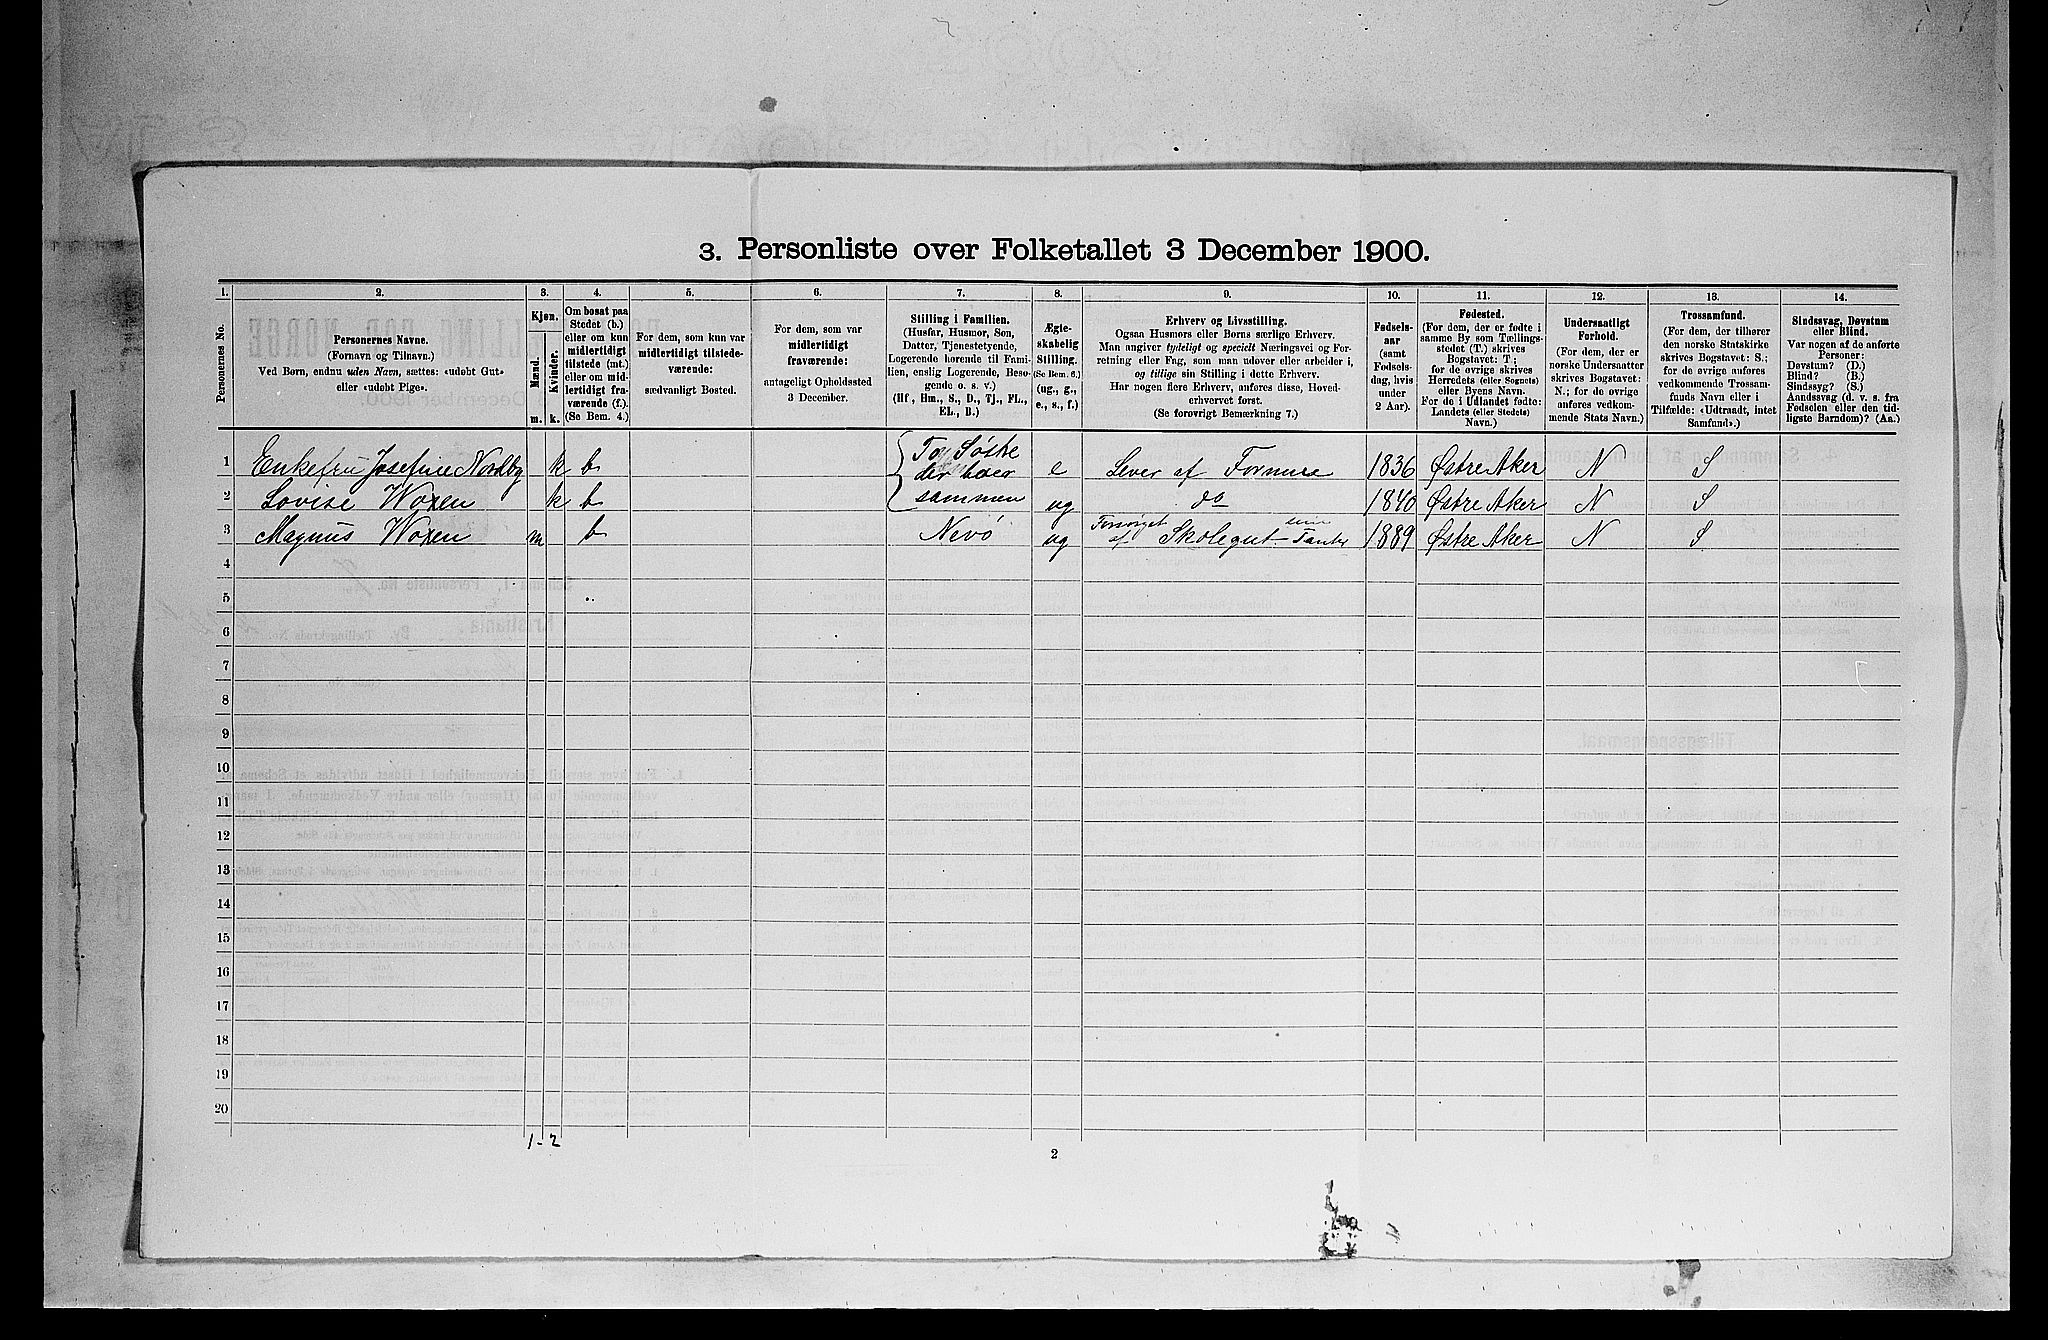 3. Personliste over Folketallet 3 December 1900.
1. 2. 3. 4. 5. 6. 7. 8. 9. 10. 11. 12. 13. 14.
Personernes No.
Personernes Navne.
(Fornavn og Tilnavn.)
Ved Børn, endnu uden Navn, sættes: «udøbt Gut»
eller «udøbt Pige».
Kjøn.
Mænd.
Kvinder.
m. k.
Om bosat paa
Stedet (b.)
eller om kun
midlertidigt
tilstede (mt.)
eller om mid-
lertidigt fra-
værende (f.).
(Se Bem. 4.)
For dem, som kun var
midlertidigt tilstede-
værende:
sædvanligt Bosted.
For dem, som var
midlertidigt
fraværende:
antageligt Opholdssted
3 December.
Stilling i Familien.
(Husfar, Husmor, Søn,
Datter, Tjenestetyende,
Logerende hørende til Fami-
lien, enslig Logerende, Besø-
gende o. s. v.)
(Hf, Hm., S., D., Tj., FL.,
EL., B.)
Ægte-
skabelig
Stilling.
(Se Bem. 6.)
(ug., g.,
e., s., f.)
Erhverv og Livsstilling.
Ogsaa Husmors eller Børns særlige Erhverv.
Man angiver tydeligt og specielt Næringsvei og For-
retning eller Fag, som man udøver eller arbeider i,
og tillige sin Stilling i dette Erhverv.
Har nogen flere Erhverv, anføres disse, Hoved-
erhvervet først.
(Se forøvrigt Bemerkning 7.)
Fødsels-
aar
(samt
Fødsels-
dag, hvis
under
2 Aar).
Fødested.
(For dem, der er fødte i
samme By som Tællings-
stedet (T.) skrives
Bogstavet: T;
for de øvrige skrives
Herredets (eller Sognets)
eller Byens Navn.
For de i Udlandet fødte:
Landets (eller Stedets)
Navn.)
Undersaatligt
Forhold.
(For dem, der er
norske Undersaatter
skrives Bogstavet:
N.; for de øvrige
anføres vedkom-
mende Stats Navn.)
Trossamfund.
(For dem, der tilhører
den norske Statskirke
skrives Bogstavet: S.;
for de øvrige anføres
vedkommende Trossam-
funds Navn eller i
Tilfælde: «Udtraadt, intet
Samfund».)
Sindssvag, Døvstum
eller Blind.
Var nogen af de anførte
Personer:
Døvstum? (D.)
Blind? (B.)
Sindssyg? (S.)
Aandssvag (d. v. s. fra
Fødselen eller den tid-
ligste Barndom)? (Aa.)
1 Enkefru Josefine Nordby k b To Søske der boer e Lever af Formue 1836 Østre Aker N S
2 Lovise Woxen k b sammen ug do 1840 Østre Aker N S
3 Magnus Woxen m b Nevø ug Forsørget af Skolegut sin Tante 1889 Østre Aker N S
4
5
6
7
8
9
10
11
12
13
14
15
16
17
18
19
20
1 - 2
2